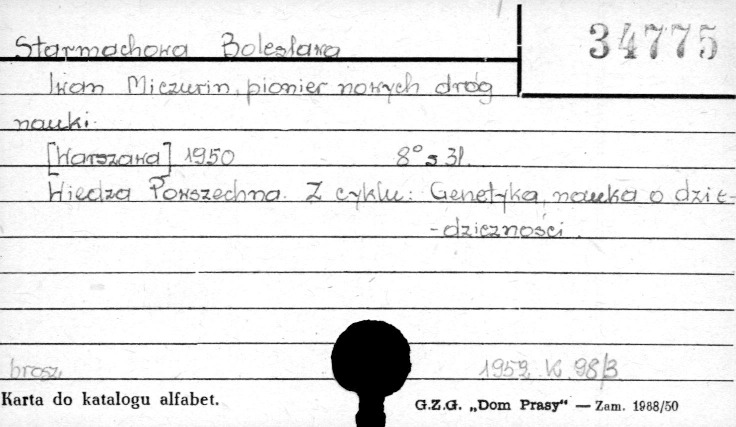 Starmachowa Bolesława
34775
Iwan Miczurin, pionier nowych dróg
nauki.
[Warszawa] 1950 8° s 31.
Wiedza Powszechna. Z cyklu: Genetyka, nauka o dzie-
-dziczności.
brosz. 1952 K. 98/3
Karta do katalogu alfabet.
G.Z.G. „Dom Prasy“ — Zam. 1988/50